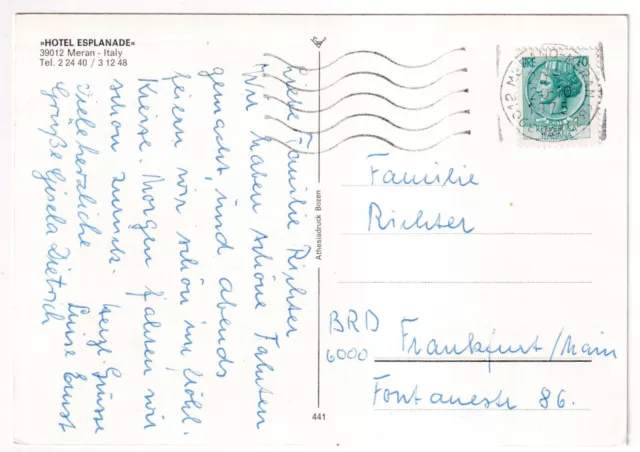 »HOTEL ESPLANADE«
39012 Meran - Italy
Tel. 2 24 40 / 3 12 48
Liebe Familie Richter
Wir haben schöne Fahrten
gemacht, und abends
feiern wir schön im Höhl.
Kreise. Morgen fahren wir
schon zurück. Herzl. Grüsse
Viele herzliche Luise Ernst
Grüße Gisela Dietrich
Athesiadruck Bozen
441
LIRE 70
Familie
Richter
BRD
6000 Frankfurt/Main
Fontanestr 86.